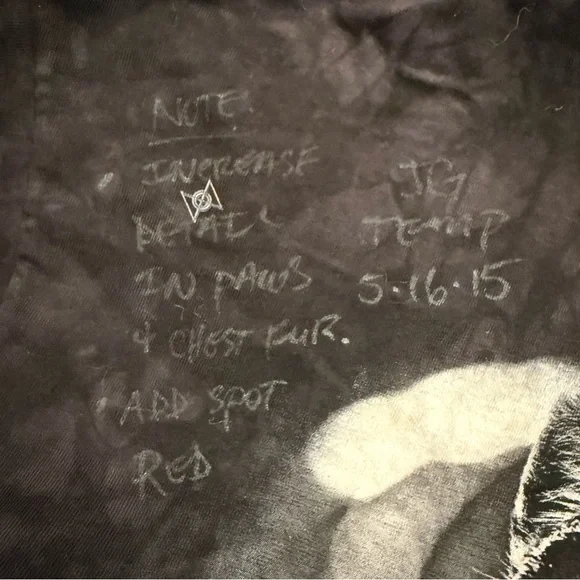 NOTE
INCREASE
DETAIL
IN PAWS
& CHEST FUR.
ADD SPOT
RED
JG
TEMP
5.16.15